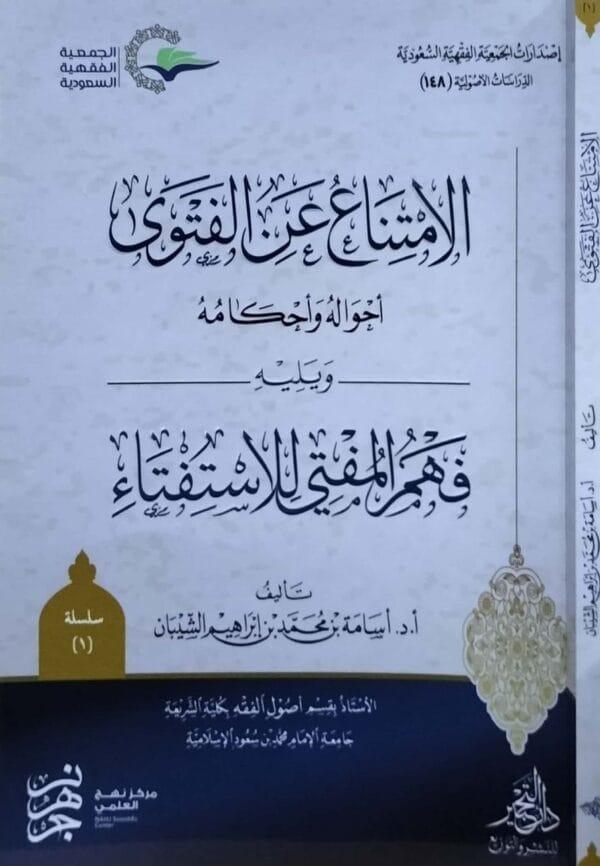 إصدارات الجمعية الفقهية السعودية
الدراسات الأصولية (١٤٨)
الجمعية
الفقهية
السعودية
الامْتِنَاعُ عَنِ الفَتْوَى
أحْوَالهُ وَأحْكَامُهُ
وَيَلِيْهِ
فَهْمُ المُفْتِي لِلاسْتِفْتَاءِ
تأليفُ
أ.د. أسَامَة بْن مُحَمَّد بْن إبْرَاهِيم الشَّيْبَان
سلسلة
(١)
الأستَاذُ بِقِسْمِ أصُولِ الفِقْهِ بِكُليَّةِ الشَّرِيعَةِ
جَامِعَة الإمَام مُحَمَّد بْن سُعُود الإسْلَامِيَّة
نهج
مركز نهج
العلمي
NAHJ Scientific
Center
دار التحبير
للنشر والتوزيع
(١)
الامْتِنَاعُ عَنِ الفَتْوَى
تأليف
أ.د. أسَامَة بْن مُحَمَّد بْن إبْرَاهِيم الشَّيْبَان